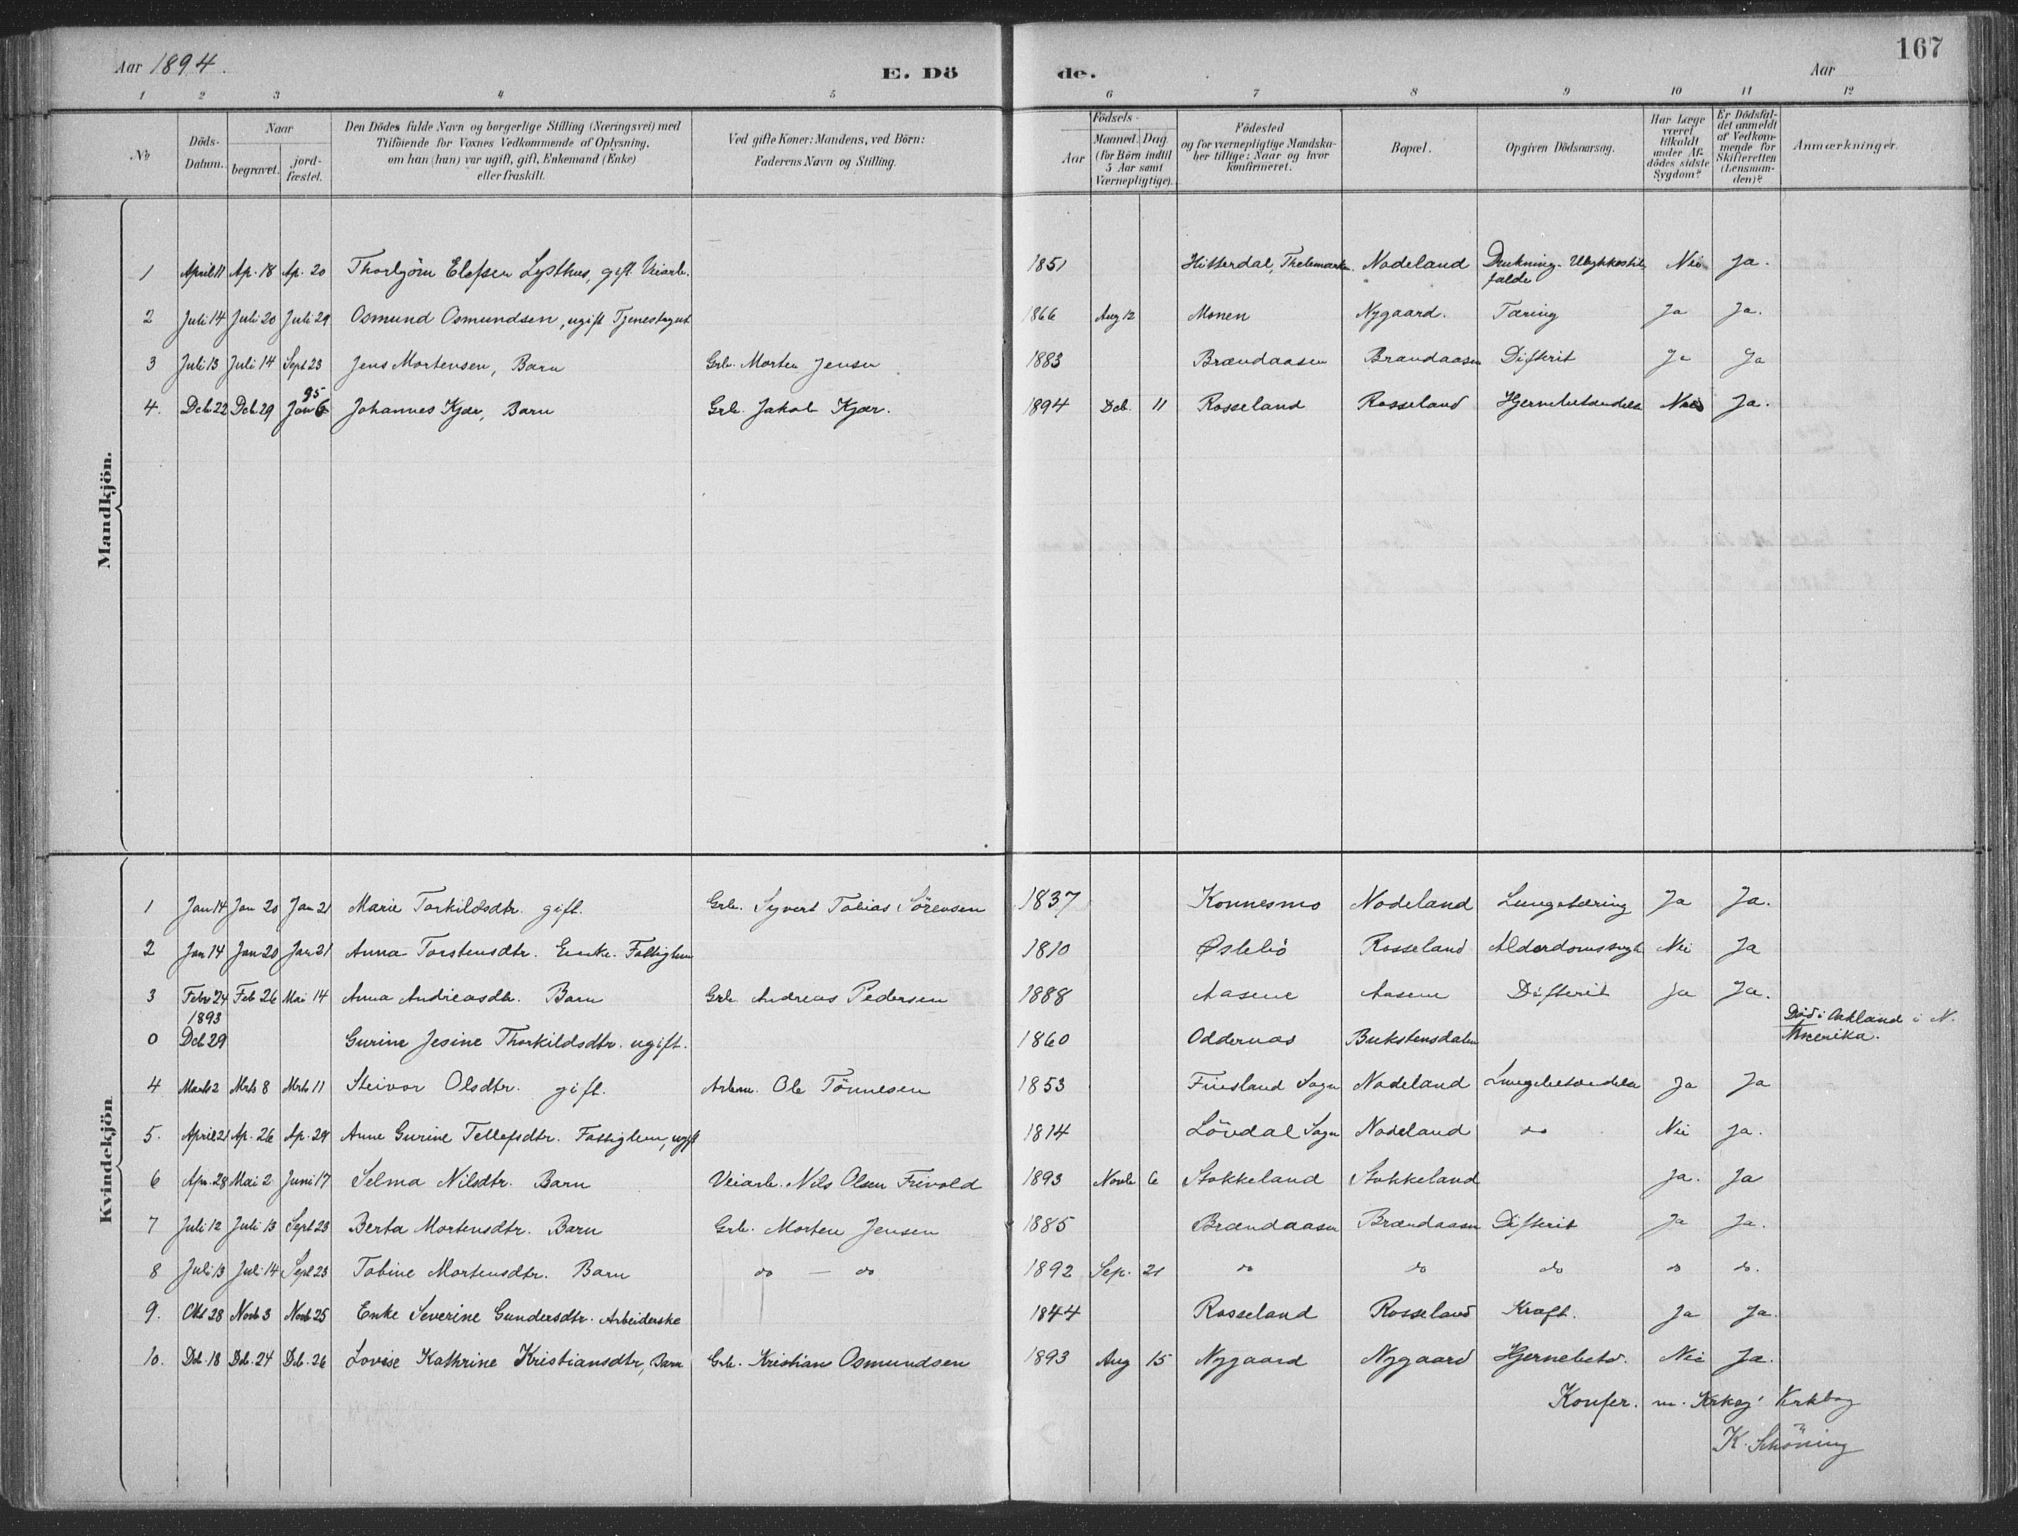 Aar 1894.
E. Dö de.
Aar
167
1 2 3 4 5 6 7 8 9 10 11 12
No.
Döds-Datum.
Naar
begravet.
jord-fæstet.
Den Dödes fulde Navn og borgerlige Stilling (Næringsvei) med
Tilföiende for Voxnes Vedkommende af Oplysning,
om han (hun) var ugift, gift, Enkemand (Enke)
eller fraskilt.
Ved gifte Koner: Mandens, ved Börn:
Faderens Navn og Stilling.
Födsels-
Aar
Maaned. Dag.
(for Börn indtil
5 Aar samt
Værnepligtige).
Födested
og for værnepligtige Mandska-
ber tillige: Naar og hvor
konfirmeret.
Bopæl.
Opgiven Dödsaarsag.
Har Læge
været
tilkaldt
under Af-
dödes sidste
Sygdom?
Er Dödsfal-
det anmeldt
af Vedkom-
mende for
Skifteretten
(Lensman-
den)?
Anmærkninger.
Mandkjön.
1 April 11 Ap. 18 Ap. 20 Thorbjörn Elefsen Lysthus, gift Veiarb. 1851 Hitterdal, Thelemarken Nodeland Drukning. Ulykkestil- Nei Ja.
fælde
2 Juli 14 Juli 20 Juli 29 Osmund Osmundsen, ugift Tjenestegut 1866 Aug 12 Monen Nygaard. Tæring Ja Ja.
3 Juli 13 Juli 14 Sept 23 Jens Mortensen, Barn Grb. Morten Jensen 1883 Brændaasen Brændaasen Difterit Ja Ja
95
4. Deb. 22 Deb. 29 Jan 6 Johannes Kjær, Barn Grb. Jakob Kjær. 1894 Deb. 11 Rosseland Rosseland Hjernebetændelse Nei Ja.
Kvindekjön
1 Jan 14 Jan 20 Jan 21 Marie Torkildsdtr. gift. Grb. Syvert Tobias Sörensen 1837 Konnesmo Nodeland Lungetæring Ja Ja.
2 Jan 14 Jan 20 Jan 21 Anna Torstensdtr. Enke. Fattiglem 1810 Østebö Rosseland Alderdomssvagh. Nei Ja
3 Febr 24 Feb 26 Mai 14 Anna Andreasdtr. Barn Grb. Andreas Pedersen 1888 Aasene Aasene Difterit Ja Ja.
1893
0 Deb 29 Gurine Jesine Thorkildsdtr. ugift. 1860 Oddernæs Bukstensdalen Död i Oakland i N.
Amerika.
4 Marts 2 Mrts 8 Mrts 11 Steivor Olsdtr. gift. Arbm. Ole Tönnesen 1853 Finsland Sogn Nodeland Lungebetændelse Ja Ja
5. April 21 Ap. 26 Ap. 29 Anne Gurine Tellefsdtr. Fattiglem, ugift 1814 Lövdal Sogn Nodeland do Nei Ja.
6 Apr. 28 Mai 2 Juni 17 Selma Nilsdtr. Barn Veiarb. Nils Olsen Frivold 1893 Novb 6 Stokkeland Stokkeland Ja. Ja
7 Juli 12 Juli 13 Sept 23 Berta Mortensdtr. Barn Grb. Morten Jensen 1885 Brændaasen Brændaasen Difterit Ja Ja.
8 Juli 13 Juli 14 Sept 23 Tobine Mortensdtr. Barn do — do 1892 Sep. 21 do do do do do.
9. Okt 28 Novb 3 Novb 25 Enke Severine Gundersdtr. Arbeiderske 1844 Rosseland Rosseland Kræft. Ja Ja.
10. Deb. 18 Deb. 24 Deb. 26 Lovise Kathrine Kristiansdtr, Barn Grb. Kristian Osmundsen 1893 Aug 15 Nygaard Nygaard Hjernebetd. Nei Ja.
Konfer. m.
K. Schöning